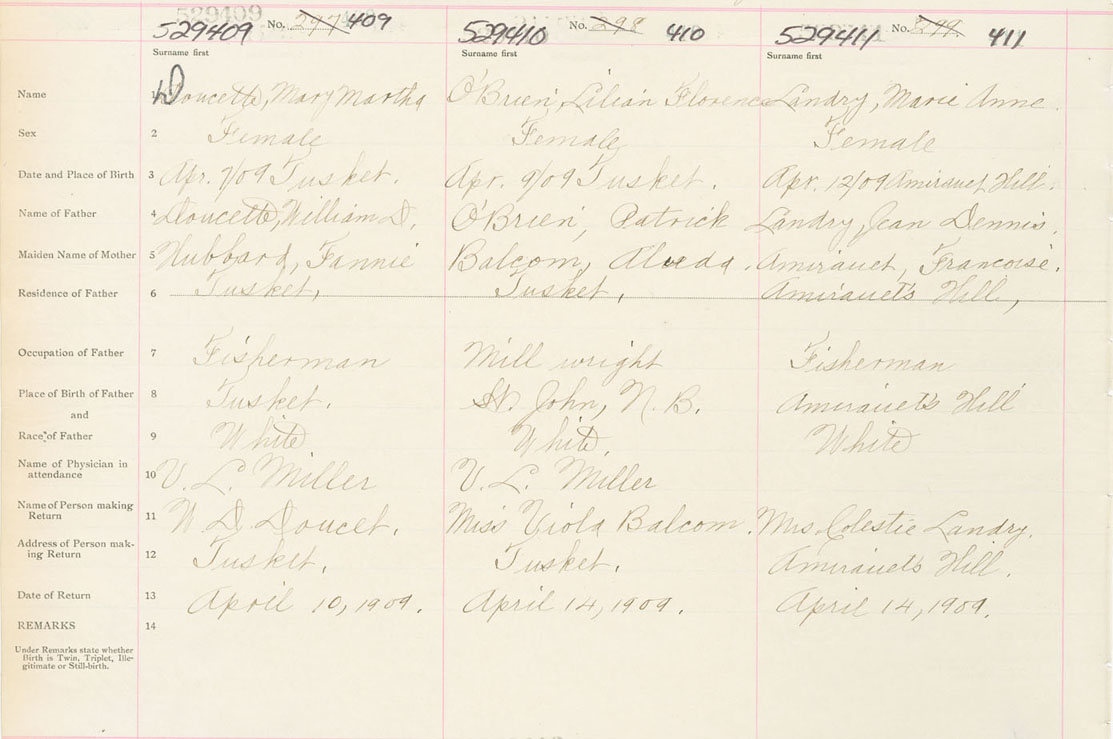 529409 No. 297 409 529410 No. 298 410 529411 No. 299. 411
Surname first Surname first Surname first
Name 1 Doucette, Mary Martha O'Brien, Lilian Florence Landry, Marie Anne.
Sex 2 Female Female Female
Date and Place of Birth 3 Apr. 7/09 Tusket. Apr. 9/09 Tusket. Apr. 12/09 Amirauet Hill.
Name of Father 4 Doucette, William D. O'Brien, Patrick Landry, Jean Dennis.
Maiden Name of Mother 5 Hubbard, Fannie Balcom, Alveda. Amirauet, Francoise.
Residence of Father 6 Tusket, Tusket, Amirauet's Hill,
Occupation of Father 7 Fisherman Mill wright Fisherman
Place of Birth of Father 8 Tusket. St. John, N.B. Amirauet's Hill
and
Race of Father 9 White White, White
Name of Physician in
attendance 10 V. L. Miller V. L. Miller
Name of Person making
Return 11 W D Doucet. Miss Viola Balcom. Mrs. Celestie Landry.
Address of Person mak-
ing Return 12 Tusket. Tusket. Amirauet's Hill.
Date of Return 13 April 10, 1909. April 14, 1909. April 14, 1909.
REMARKS 14
Under Remarks state whether
Birth is Twin, Triplet, Ille-
gitimate or Still-birth.